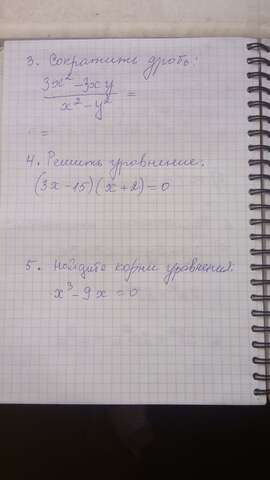 3. Сократить дробь:
3x² - 3xy
x² - y²
=
=
4. Решить уровнение.
(3x - 15)(x + 2) = 0
5. Найдите корни уровнения:
x³ - 9x = 0